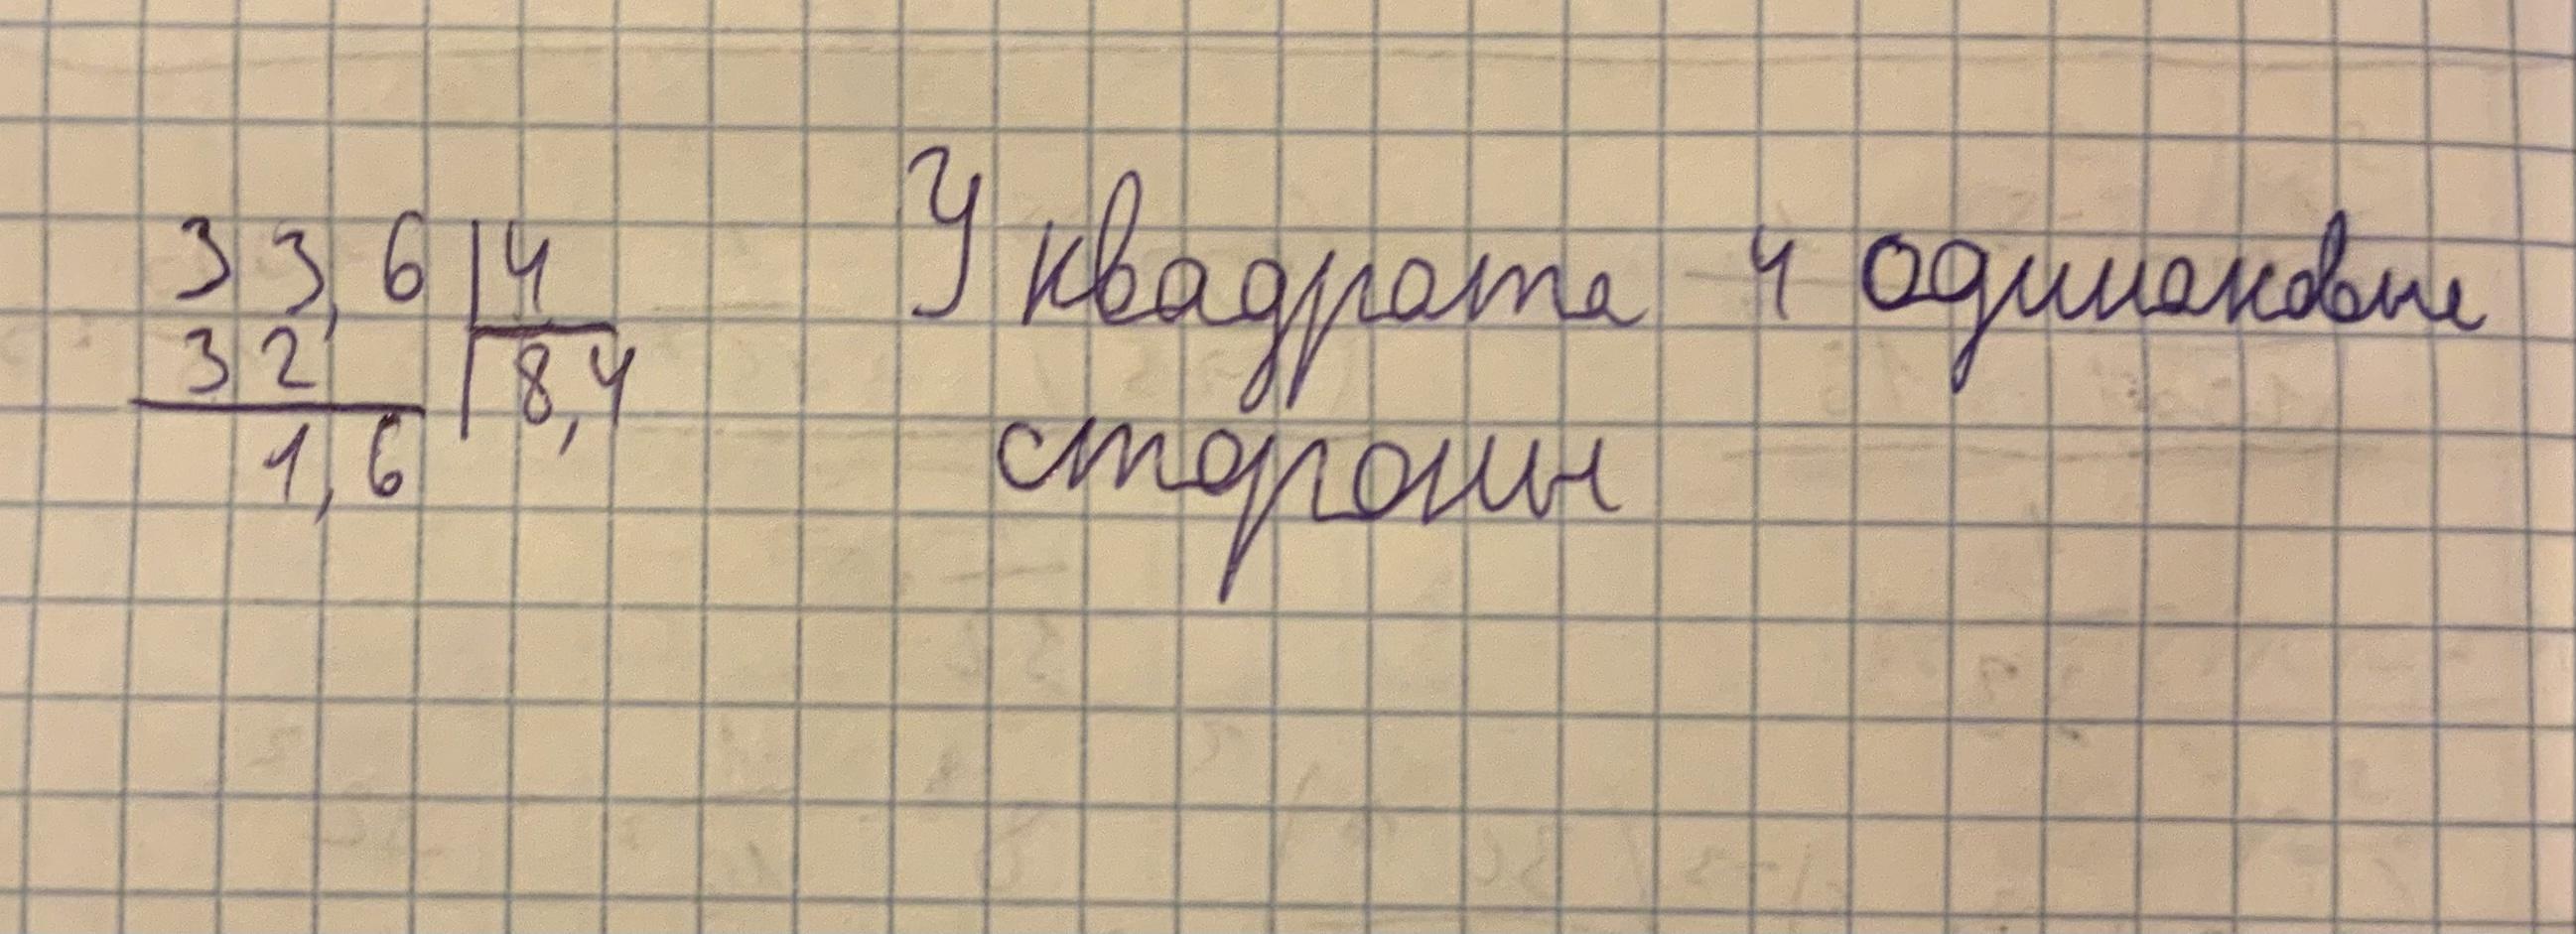 33,6 | 4
32 | 8,4
1,6
У квадрата 4 одинаковые
стороны